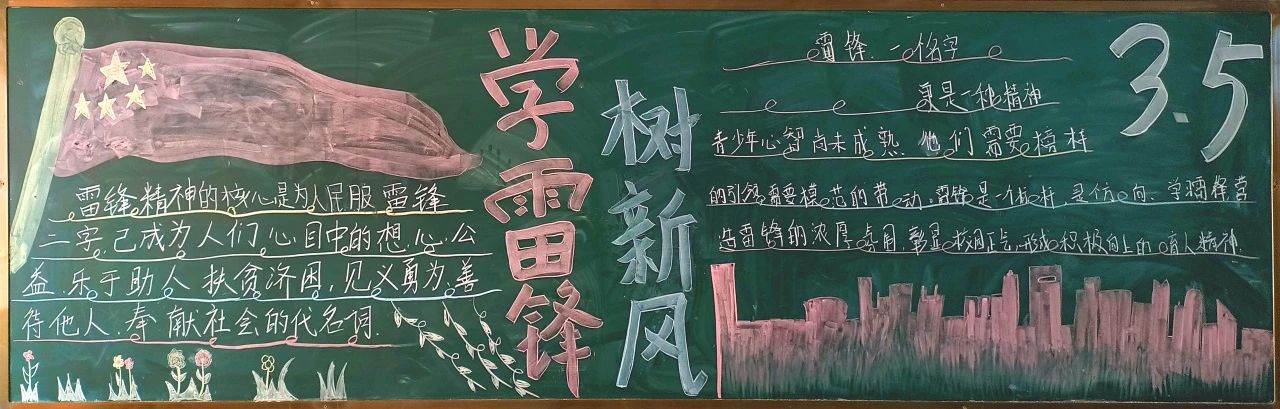 雷锋精神的核心是为人民服 雷锋
二字,已成为人们心目中的想心公
益、乐于助人 扶贫济困,见义勇为、善
待他人、奉献社会的代名词.
学雷锋
树新风
雷锋.一个名字
更是一种精神
3.5
青少年心智尚未成熟 他们需要榜样
的引领,需要模范的带动,雷锋是一个标杆,是个方向.学
造雷锋的浓厚 形成积极向上的育人精神.